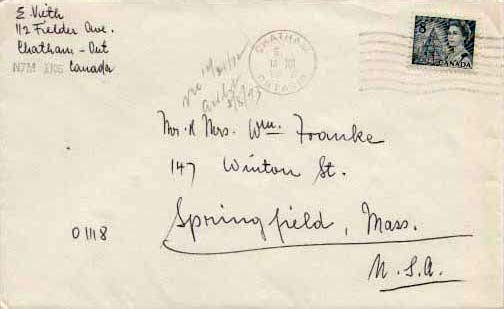 E. Vieth
112 Fielder Ave.
Chatham - Ont
N7M 1K6 Canada
CHATHAM
ONTARIO
8
CANADA
Mr. & Mrs. Wm. Franke
147 Winton St.
Springfield, Mass.
U.S.A.
01118